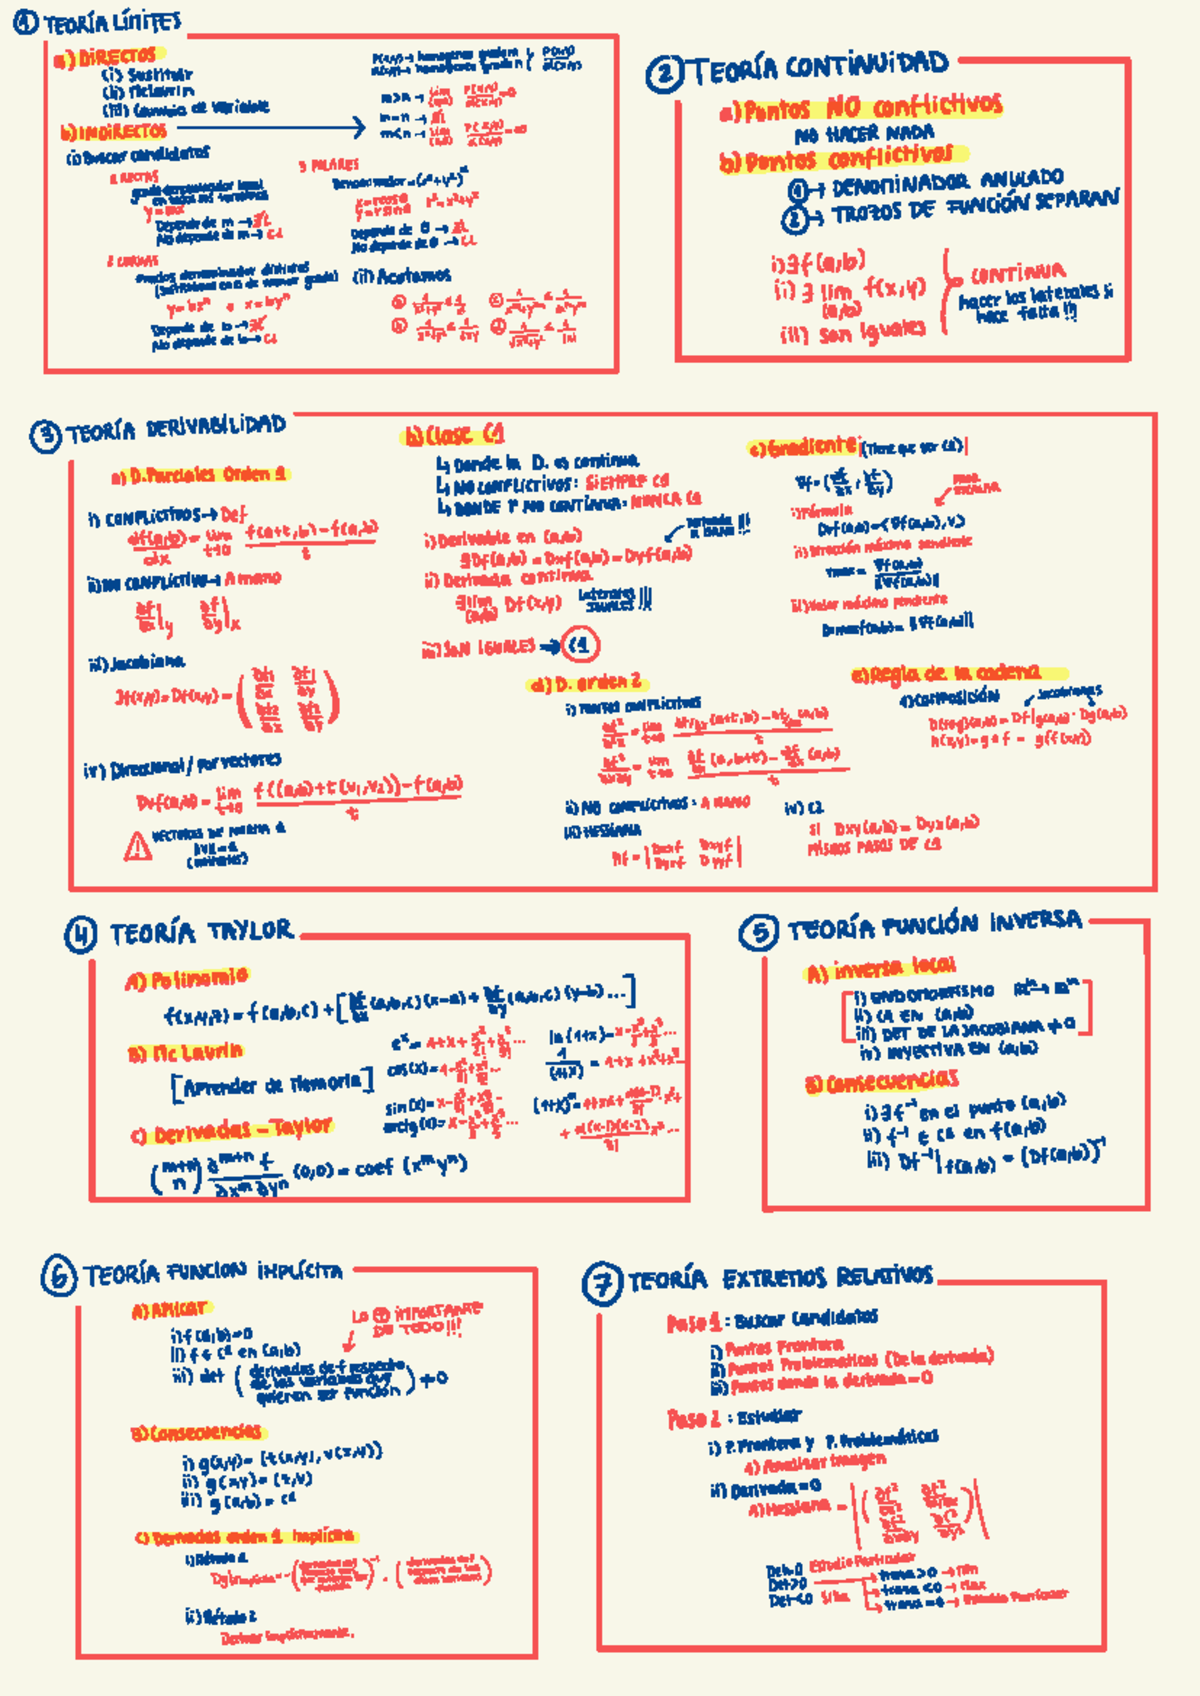 ① TEORÍA LÍMITES
a) DIRECTOS
(i) Sustituir
(ii) McLaurin
(iii) Cambio de variable
b) INDIRECTOS
(i) Buscar candidatos
1 RECTAS
grado denominador igual
en todas sus variables
y=mx
Depende de m → ∄L
No depende de m → CL
2 CURVAS
Grados denominador distintos
y=bxⁿ o x=byⁿ
Depende de b → ∄L
No depende de b → CL
m>n →
m=n → ∄L
m<n →
3 POLARES
Denominador =(x²+y²)ᵅ
x=rcosθ
y=rsinθ r²=x²+y²
Depende de θ → ∄L
No depende de θ → CL
(ii) Acotamos
② TEORÍA CONTINUIDAD
a) Puntos NO conflictivos
NO HACER NADA
b) Puntos conflictivos
① → DENOMINADOR ANULADO
② → TROZOS DE FUNCIÓN SEPARAN
i) ∃ f(a,b)
ii) ∃ lim f(x,y)
(a,b)
iii) son iguales
CONTINUA
hacer los laterales si
hace falta !!!
③ TEORÍA DERIVABILIDAD
a) D.Parciales Orden 1
i) CONFLICTIVOS → Def
df(a,b)/dx = lim t→0 f(a+t,b)-f(a,b)/t
ii) NO CONFLICTIVO → A mano
∂f/∂x|y ∂f/∂y|x
iii) Jacobiana
Jf(x,y)=Df(x,y)= (∂f1/∂x ∂f1/∂y
∂f2/∂x ∂f2/∂y)
iv) Direccional / por vectores
Dvf(a,b) = lim t→0 f((a,b)+t(v₁,v₂))-f(a,b)/t
VECTORES DE NORMA 1
||v||=1
(unitarios)
b) Clase C1
↳ Donde la D. es continua
↳ NO CONFLICTIVOS: SIEMPRE C1
↳ DONDE f NO CONTINUA: NUNCA C1
i) Derivable en (a,b)
∃Df(a,b) = Dxf(a,b) = Dyf(a,b)
ii) Derivada continua
∃lim (a,b) Df(x,y) Laterales IGUALES !!!
iii) SON IGUALES → C1
c) Gradiente (Tiene que ser C1)
∇f=(∂f/∂x, ∂f/∂y)
PROD. ESCALAR
i) Fórmula
Dvf(a,b)=<∇f(a,b),v>
ii) Dirección máxima pendiente
vmax = ∇f(a,b)/||∇f(a,b)||
iii) Valor máximo pendiente
Dvmaxf(a,b)= ||∇f(a,b)||
d) D. orden 2
i) PUNTOS CONFLICTIVOS
ii) NO CONFLICTIVOS: A MANO
iii) HESSIANA
Hf = |Dxxf Dxyf
Dyxf Dyyf|
iv) C2
Si Dxy(a,b) = Dyx(a,b)
MISMOS PASOS DE C1
e) Regla de la cadena
1) COMPOSICIÓN Jacobianas
D(fog)(a,b)=Df|g(a,b) · Dg(a,b)
h(x,y)=g∘f = g(f(x,y))
④ TEORÍA TAYLOR
A) Polinomio
f(x,y,z) = f(a,b,c) + [∂f/∂x (a,b,c)(x-a) + ∂f/∂y (a,b,c)(y-b)...]
B) Mc Laurin
[Aprender de Memoria]
eˣ = 1+x+x²/2!+x³/3!...
cos(x)=1-x²/2!+x⁴/4!...
sin(x)=
arctg(x)= x-x³/3+x⁵/5...
ln(1+x)=x-x²/2+x³/3...
C) Derivadas - Taylor
(m+n n) ∂ᵐ⁺ⁿ f/∂xᵐ ∂yⁿ (0,0) = coef (xᵐyⁿ)
⑤ TEORÍA FUNCIÓN INVERSA
A) inversa local
i) ENDOMORFISMO ℝⁿ→ℝⁿ
ii) C1 EN (a,b)
iii) DET DE LA JACOBIANA ≠ 0
iv) INYECTIVA EN (a,b)
B) Consecuencias
i) ∃ f⁻¹ en el punto (a,b)
ii) f⁻¹ ∈ C1 en f(a,b)
iii) Df⁻¹|f(a,b) = (Df(a,b))⁻¹
⑥ TEORÍA FUNCION IMPLÍCITA
A) APLICAR
i) f(a,b)=0
ii) f ∈ C1 en (a,b)
iii) det (derivadas de f respecto
de las variables que
quieren ser función) ≠ 0
LO + IMPORTANTE
DE TODO!!!
B) Consecuencias
i) g(x,y)= (t(x,y), v(x,y))
ii) g(x,y)= (t,v)
iii) g(a,b) = C1
C) Derivadas orden 1 Implícita
i) Método 1
ii) Método 2
Derivar implícitamente.
⑦ TEORÍA EXTREMOS RELATIVOS
Paso 1 : Buscar Candidatos
i) Puntos Frontera
ii) Puntos Problemáticos (De la derivada)
iii) Puntos donde la derivada = 0
Paso 2 : Estudiar
i) P. Frontera y P. Problemáticos
1) Analizar Imagen
ii) Derivada = 0
1) Hessiana =
Det=0 Estudio Particular
Det>0 → traza >0 → Min
Det<0 Silla → traza <0 → Max
→ traza =0 → Estudio Particular